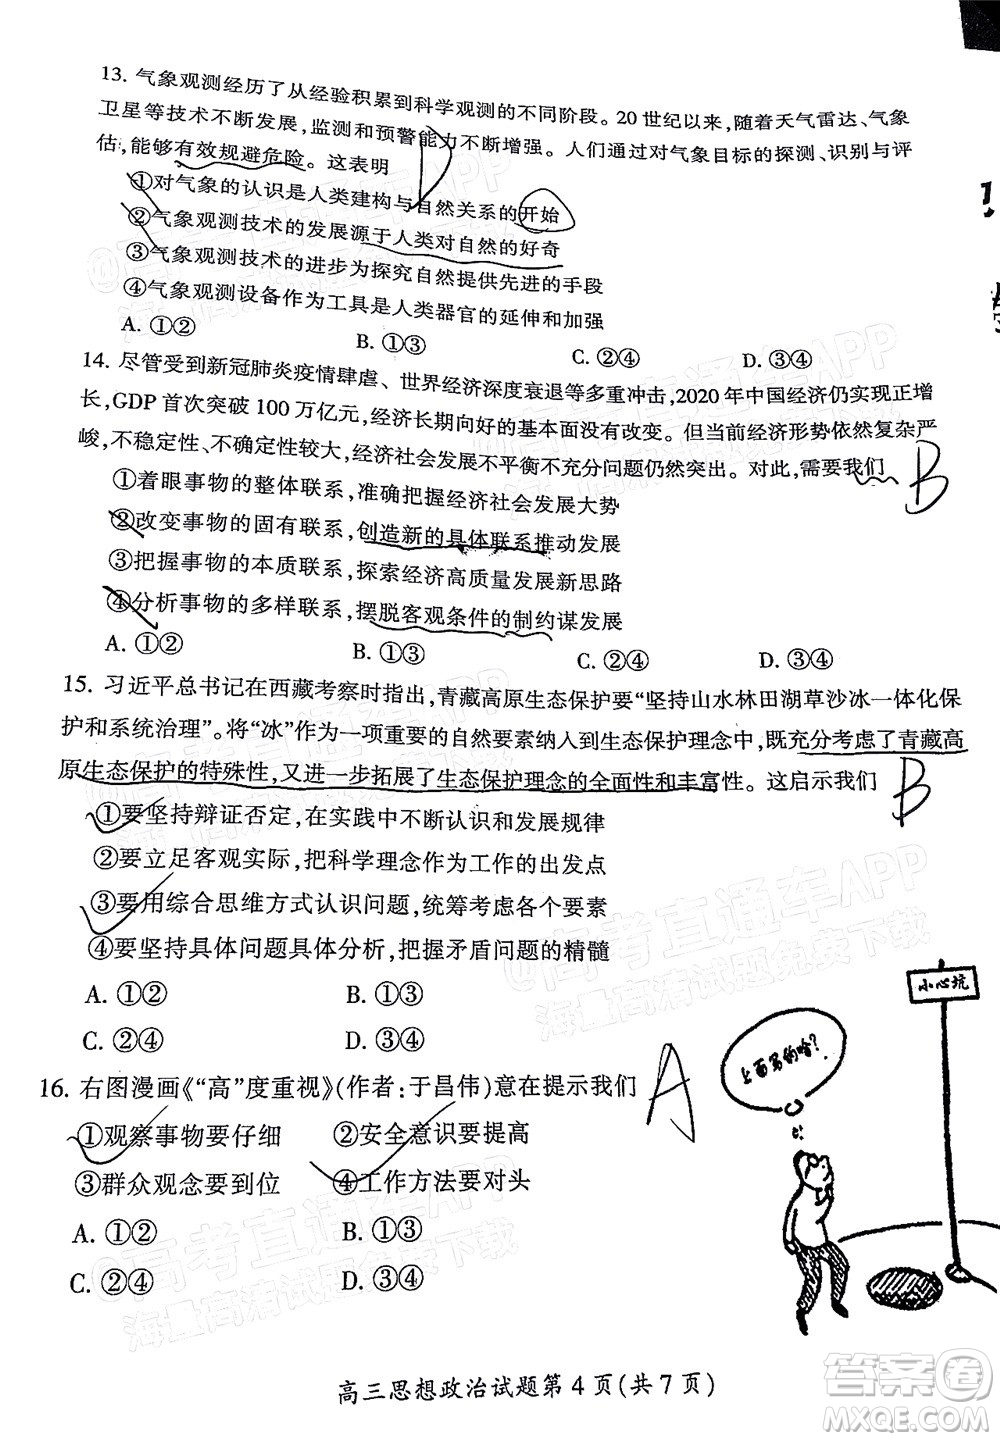 13. 气象观测经历了从经验积累到科学观测的不同阶段。20 世纪以来,随着天气雷达、气象
卫星等技术不断发展,监测和预警能力不断增强。人们通过对气象目标的探测、识别与评
估,能够有效规避危险。这表明
D
①对气象的认识是人类建构与自然关系的开始
②气象观测技术的发展源于人类对自然的好奇
③气象观测技术的进步为探究自然提供先进的手段
④气象观测设备作为工具是人类器官的延伸和加强
A. ①② B. ①③ C. ②④ D. ③④
14. 尽管受到新冠肺炎疫情肆虐、世界经济深度衰退等多重冲击,2020 年中国经济仍实现正增
长,GDP 首次突破 100 万亿元,经济长期向好的基本面没有改变。但当前经济形势依然复杂严
峻,不稳定性、不确定性较大,经济社会发展不平衡不充分问题仍然突出。对此,需要我们
B
①着眼事物的整体联系,准确把握经济社会发展大势
②改变事物的固有联系,创造新的具体联系推动发展
③把握事物的本质联系,探索经济高质量发展新思路
④分析事物的多样联系,摆脱客观条件的制约谋发展
A. ①② B. ①③ C. ②④ D. ③④
15. 习近平总书记在西藏考察时指出,青藏高原生态保护要“坚持山水林田湖草沙冰一体化保
护和系统治理”。将“冰”作为一项重要的自然要素纳入到生态保护理念中,既充分考虑了青藏高
原生态保护的特殊性,又进一步拓展了生态保护理念的全面性和丰富性。这启示我们
B
①要坚持辩证否定,在实践中不断认识和发展规律
②要立足客观实际,把科学理念作为工作的出发点
③要用综合思维方式认识问题,统筹考虑多种要素
④要坚持具体问题具体分析,把握矛盾问题的精髓
A. ①② B. ①③
C. ②④ D. ③④
16. 右图漫画《“高”度重视》(作者:于昌伟)意在提示我们
A
①观察事物要仔细 ②安全意识要提高
③群众观念要到位 ④工作方法要对头
A. ①② B. ①③
C. ②④ D. ③④
小心坑
上面写的啥?
高三思想政治试题第 4 页(共 7 页)
@高考直通车APP
海量高清试题免费下载
@高考直通车APP
海量高清试题免费下载
@高考直通车APP
海量高清试题免费下载
答案圈
MXQE.COM